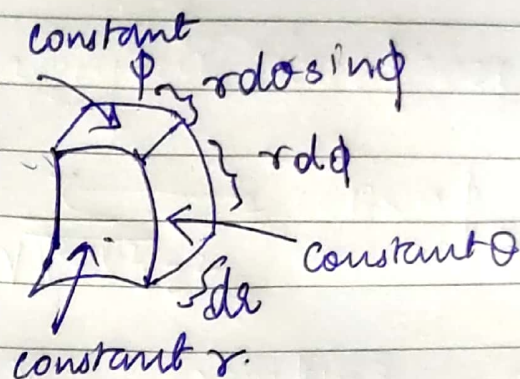 constant
ϕ rdθsinϕ
rdϕ
constant θ
dr
constant r.